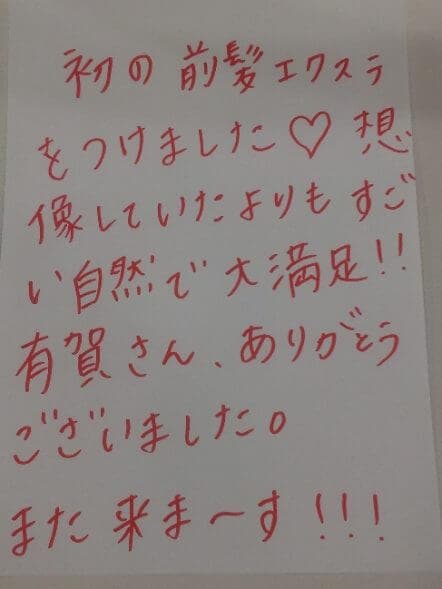 初の前髪エクステ
をつけました♡想
像していたよりもすご
い自然で大満足!!
有賀さん、ありがとう
ございました。
また来ま～す!!!